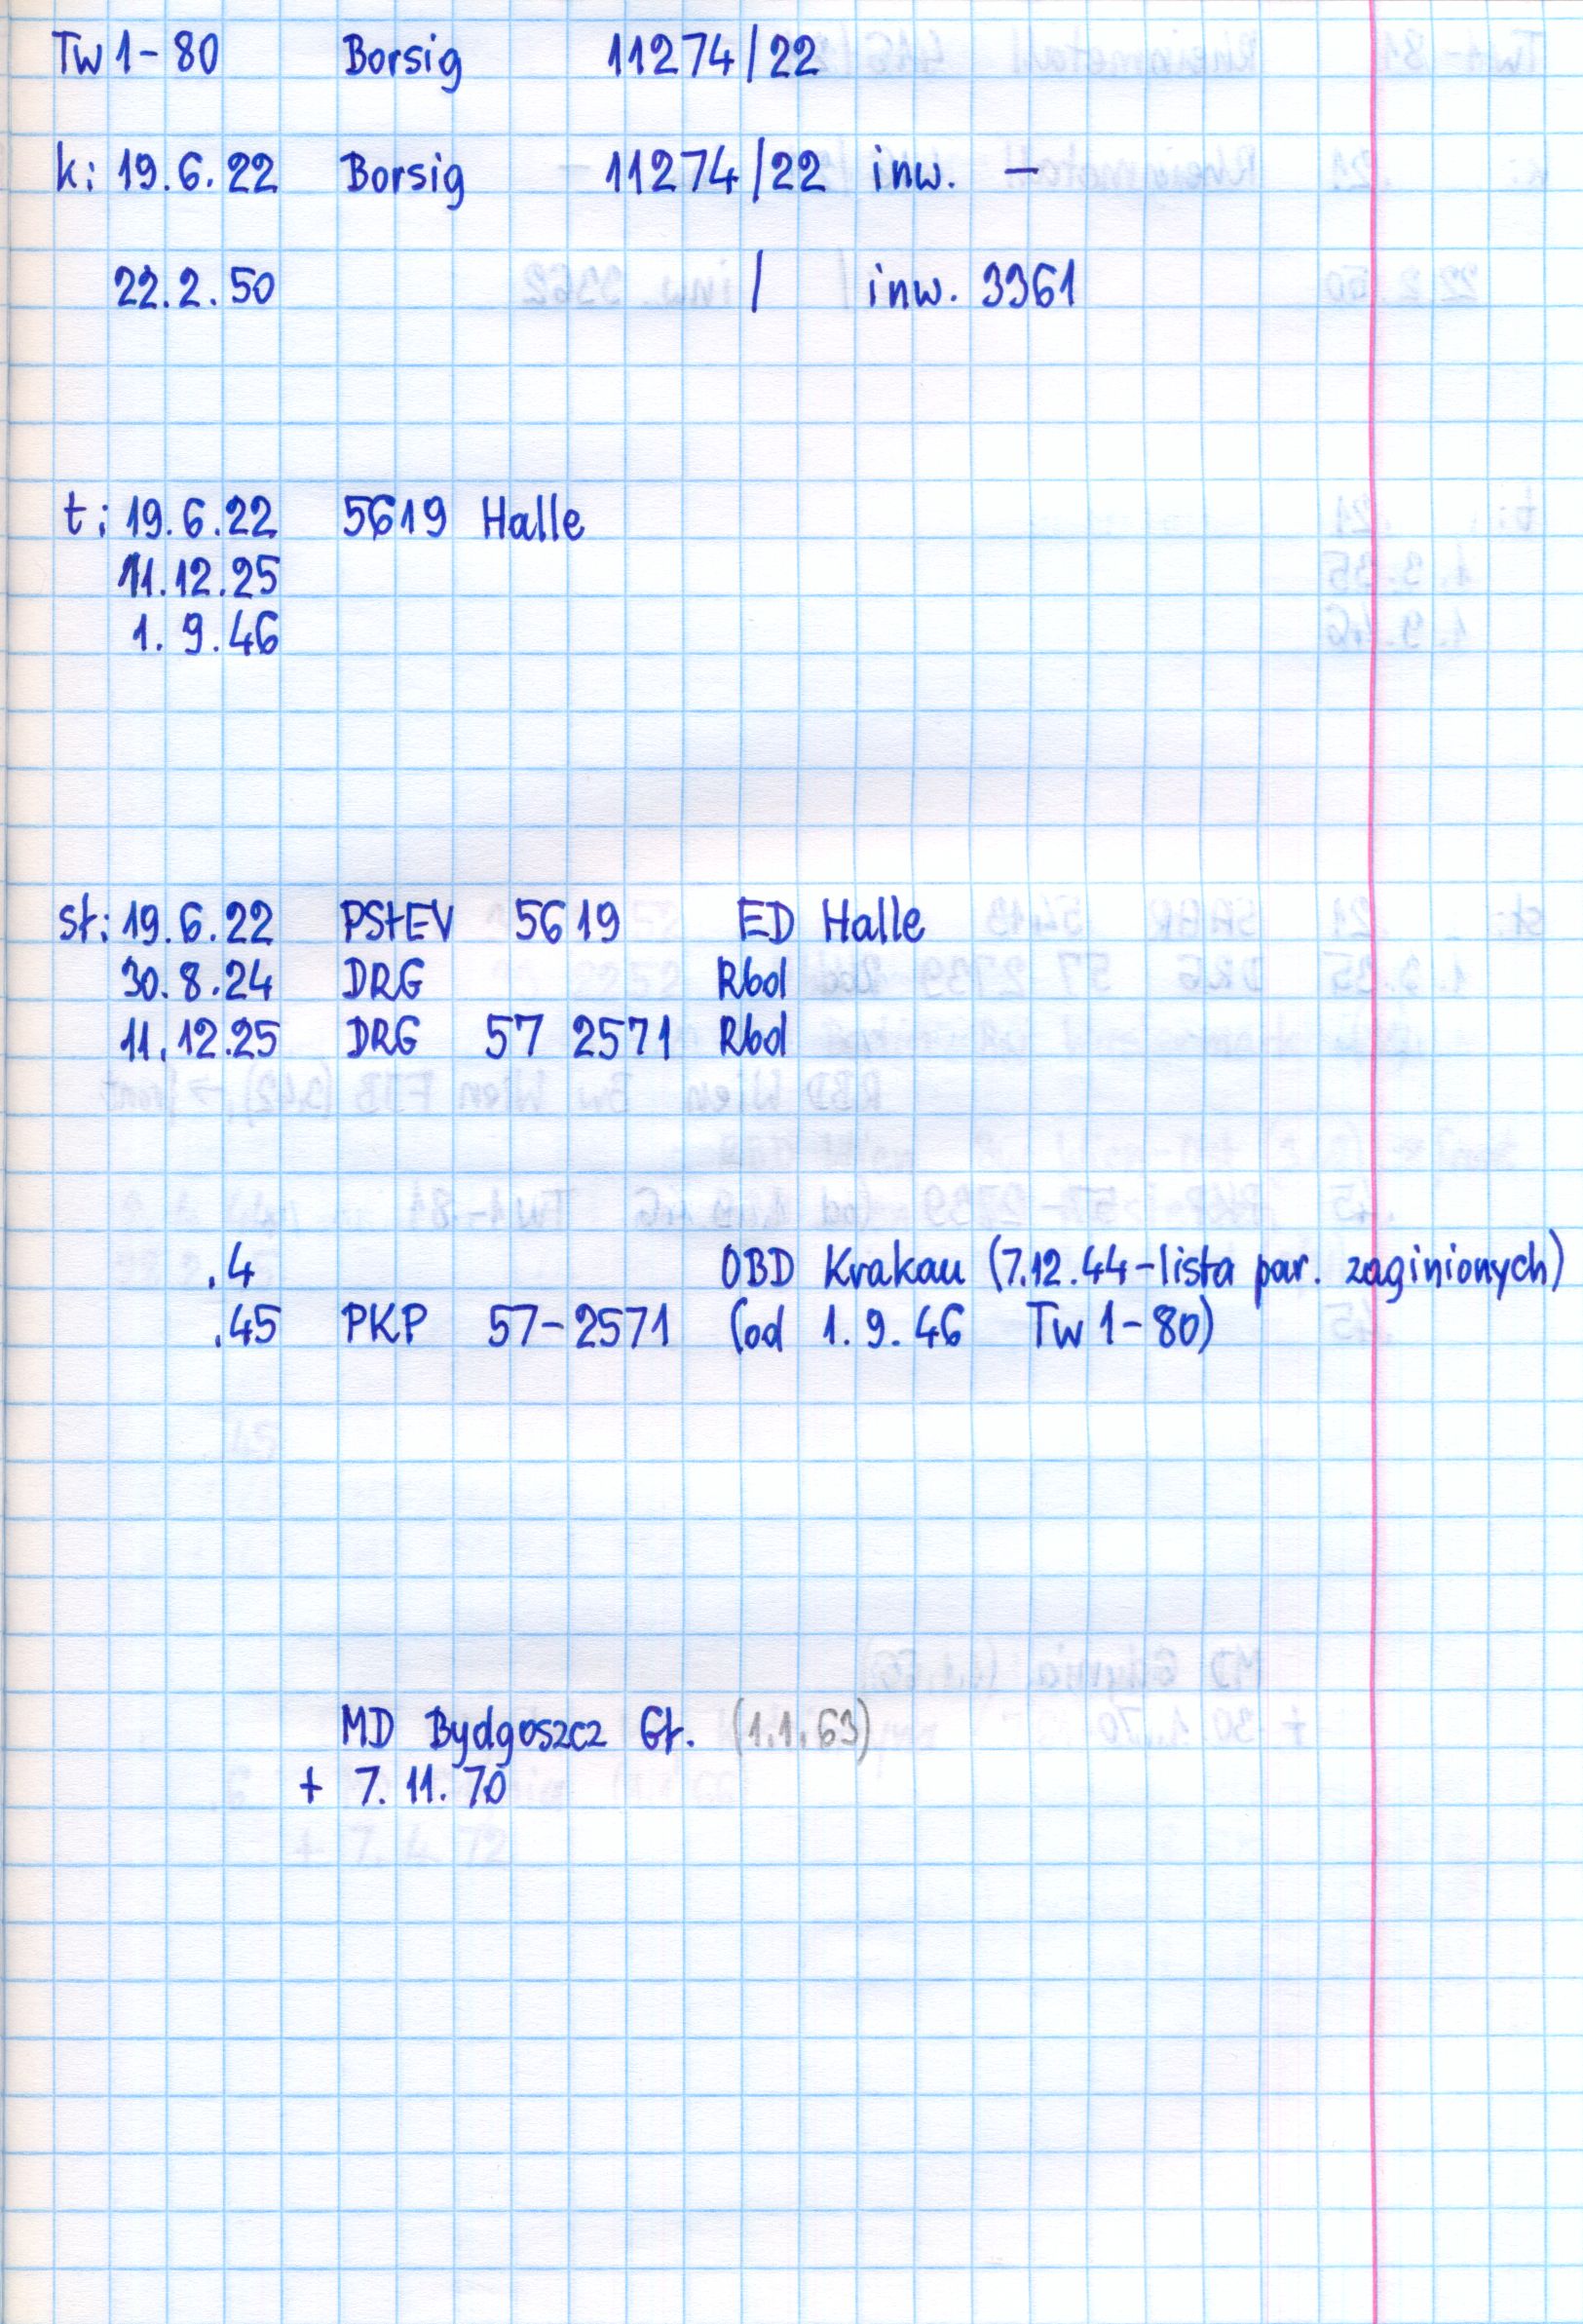 Tw 1-80 Borsig 11274/22
k: 19.6.22 Borsig 11274/22 inw. –
22.2.50 / inw. 3361
t: 19.6.22 5619 Halle
11.12.25
1.9.46
st: 19.6.22 PStEV 5619 ED Halle
30.8.24 DRG Rbd
11.12.25 DRG 57 2571 Rbd
.4 OBD Krakau (7.12.44-lista par. zaginionych)
.45 PKP 57-2571 (od 1.9.46 Tw 1-80)
MD Bydgoszcz Gł. (1.1.63)
+ 7.11.70